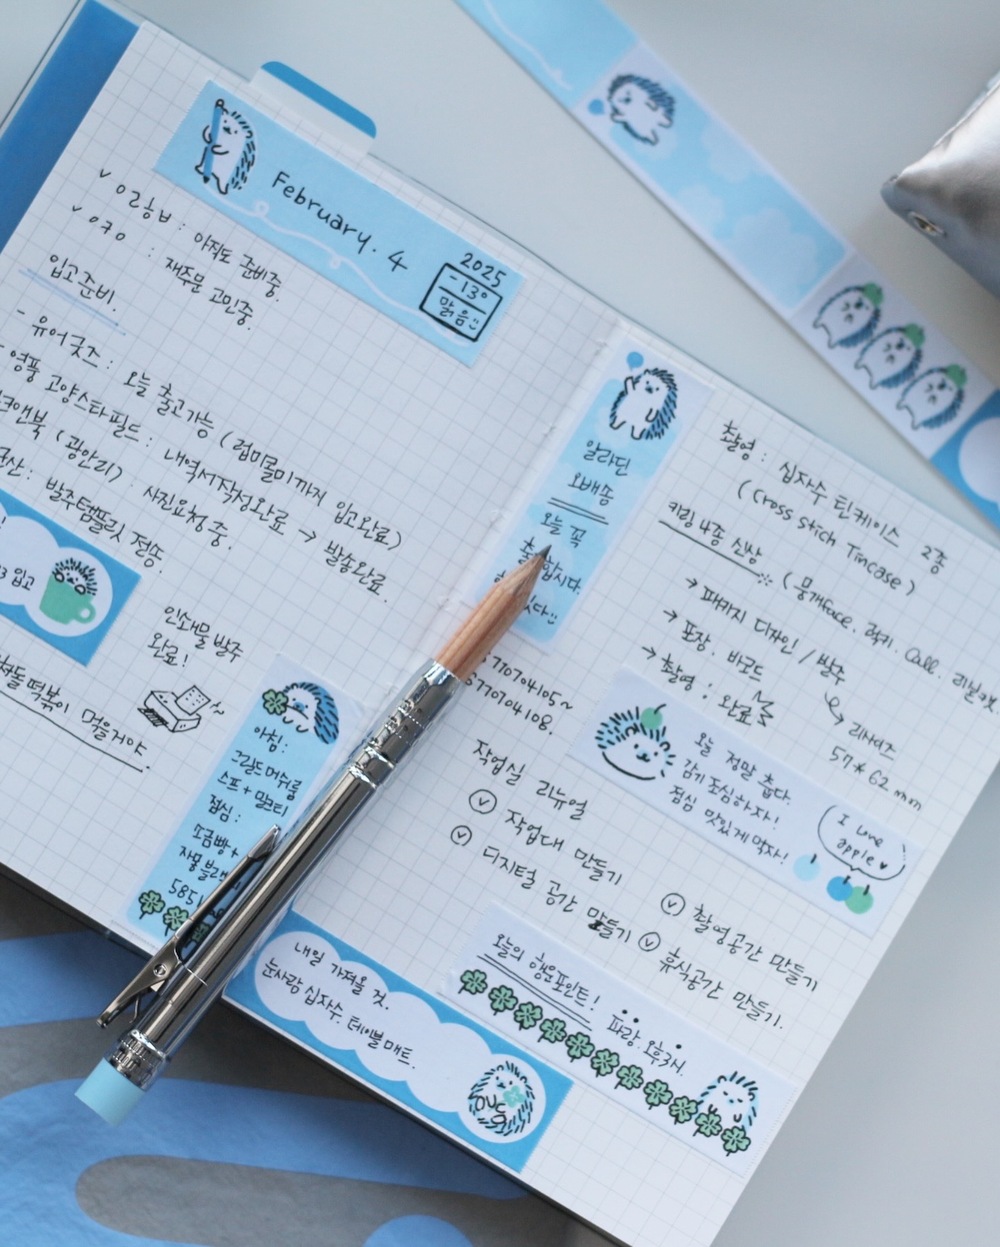 February. 4
2025
-13°
맑음
아직도 준비중.
재주문 고민중.
입고준비.
- 유어굿즈 : 오늘 출고가능 (럽미몰미까지 입고완료)
영풍 고양스타필드 : 내역서작성완료 → 발송완료.
(광안리) : 사진요청중.
발주템플릿 전송.
입고
인쇄물 발주
완료!
떡볶이 먹을거야.
아침:
그랜드머쉬룸
스프 + 밀크티
점심:
소금빵 +
알라딘
오배송
오늘 꼭
합시다.
5770704105~
5770704108.
촬영 : 십자수 틴케이스 2종
(Cross stich Tincase)
키링 4종 신상
(뭉개face. 럭키. Call.
→ 패키지 디자인 / 발주
→ 포장. 바코드
→ 촬영 : 완료
↳ 리사이즈
57 * 62 mm
오늘 정말 춥다.
감기 조심하자!
점심 맛있게 먹자!
I love
apple ♥
작업실 리뉴얼
작업대 만들기
디지털 공간 만들기
촬영공간 만들기
휴식공간 만들기.
오늘의 행운포인트!
파랑 오후3시.
내일 가져올 것.
눈사람 십자수 테이블매트.